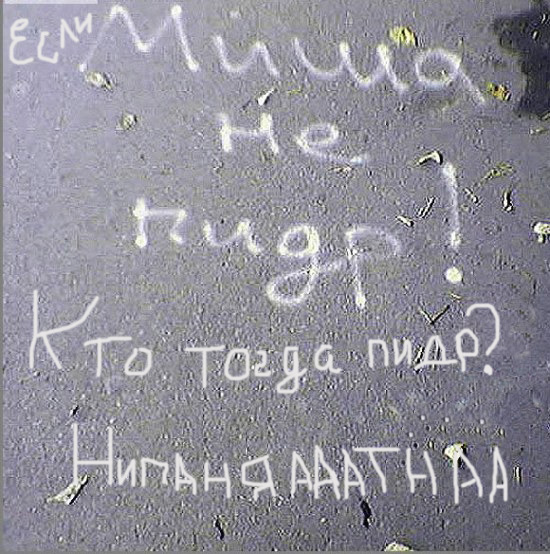 Если Миша
не
пидр!
Кто тогда пидр?
НИПАНЯАААТНАА